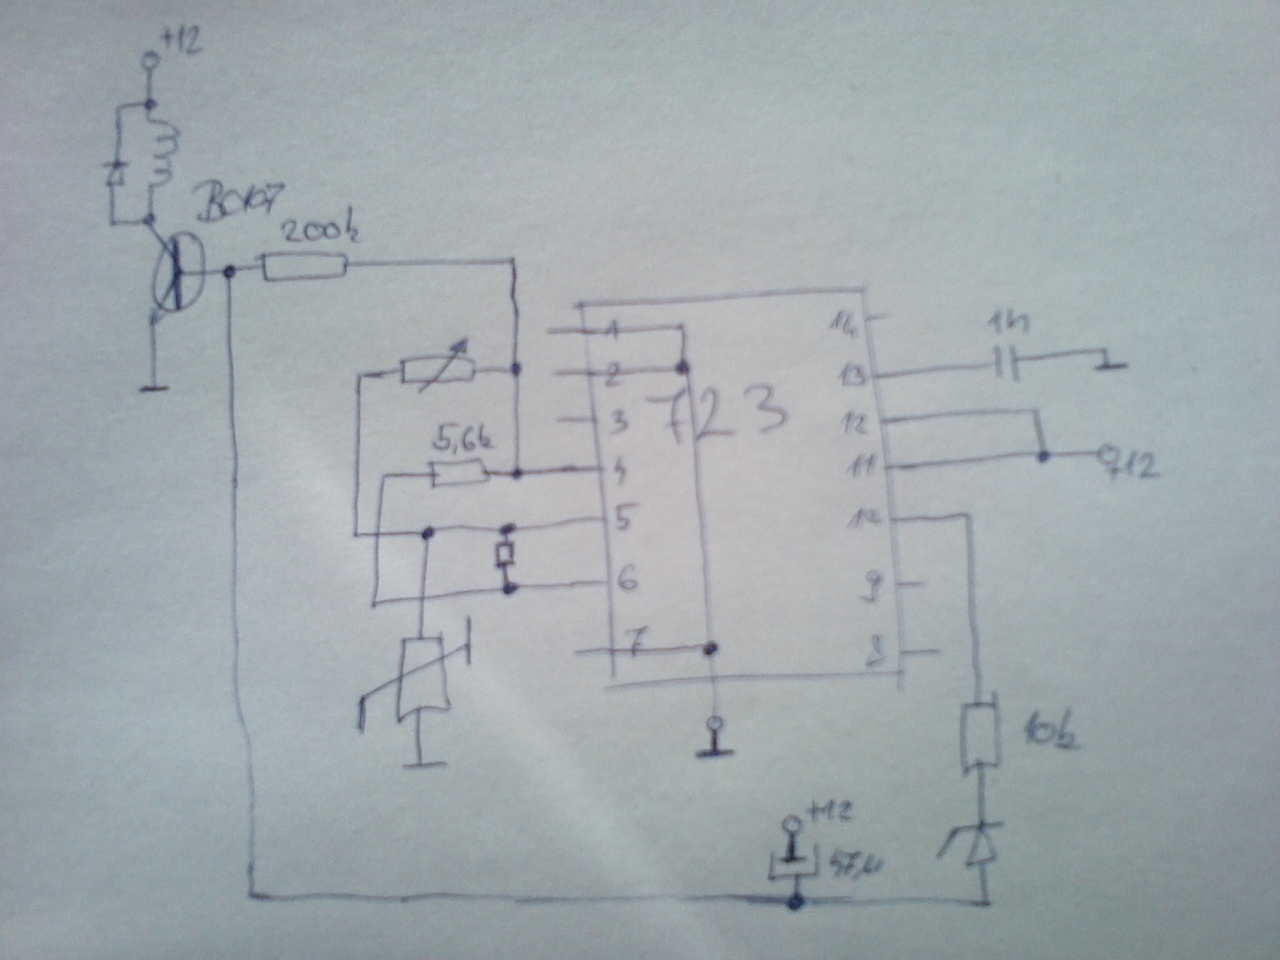 +12
BC107
200k
1
14
1n
2
13
723
3
12
5,6k
4
11
+12
5
10
6
9
7
8
10k
+12
47µ